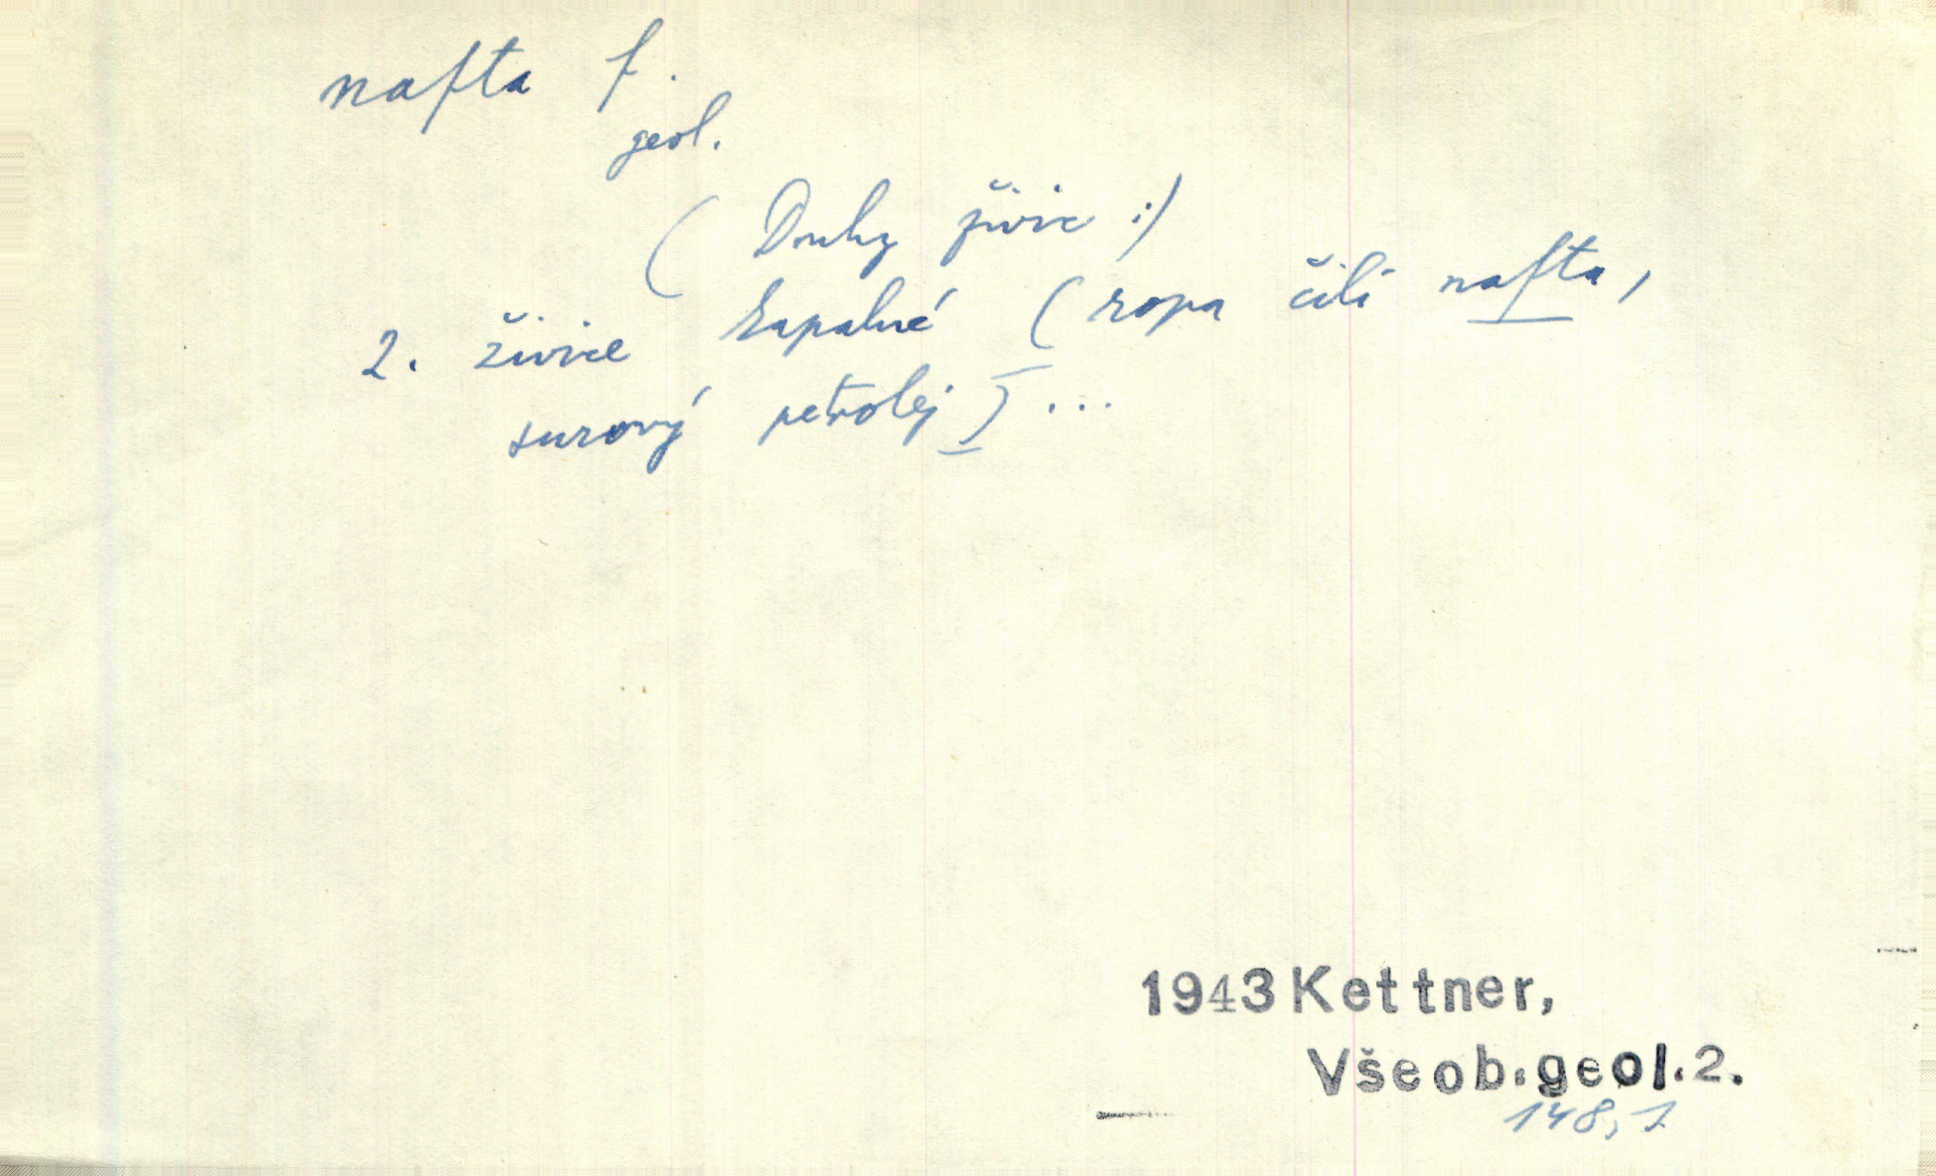 nafta f.
geol.
(Druhy živic :)
2. živice kapalné (ropa čili nafta,
surový petrolej) ...
1943 Kettner,
Všeob.geol.2.
148, 1